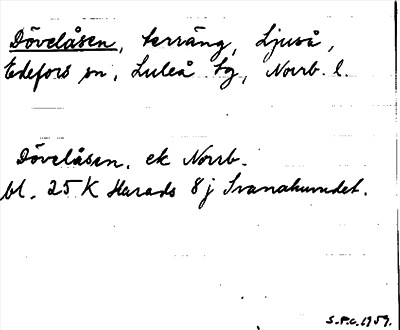 Dövelåsen, terräng, Ljuså,
Edefors sn, Luleå tg, Norrb. l.
Dövelåsen. ek Norrb.
bl. 25 K Harads 8 j Svanahundet.
S.P.G. 1959.